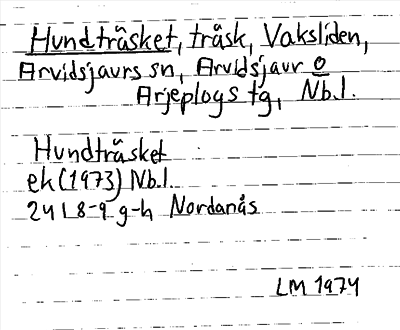 Hundträsket, träsk, Vaksliden,
Arvidsjaurs sn, Arvidsjaur o
Arjeplogs tg, Nb.l.
Hundträsket
ek (1973) Nb.l.
24 I 8-9 g-h Nordanås
LM 1974